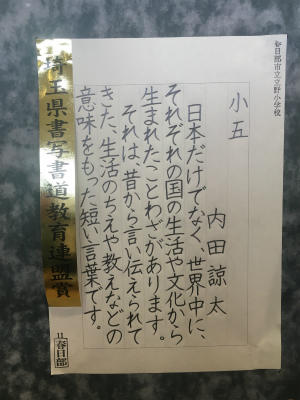 春日部市立立野小学校
小五
内田諒太
日本だけでなく、世界中に、
それぞれの国の生活や文化から
生まれたことわざがあります。
それは、昔から言い伝えられて
きた、生活のちえや教えなどの
意味をもった短い言葉です。
埼玉県書写書道教育連盟賞
11
春日部